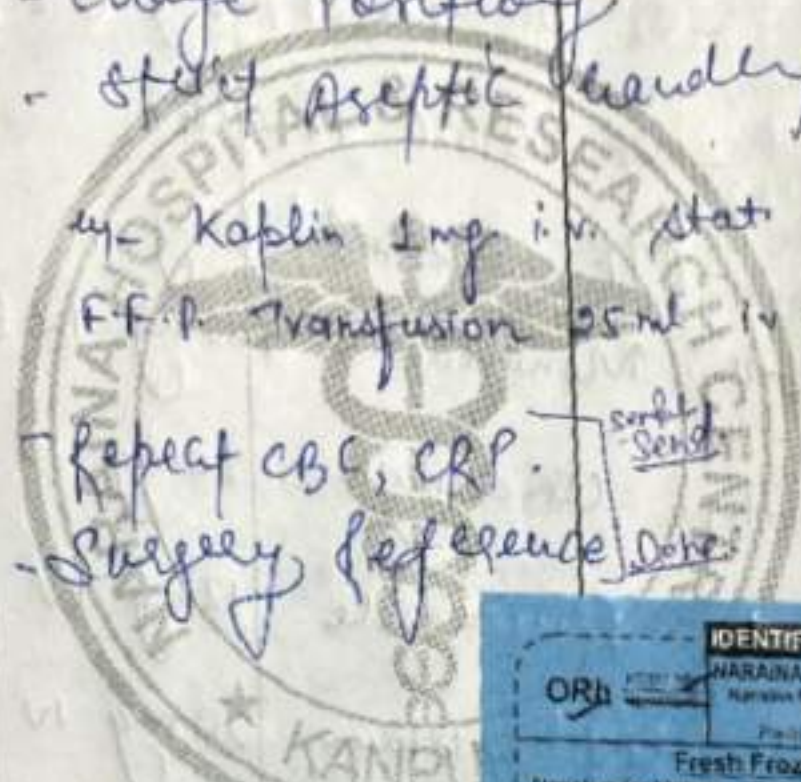 - Strict Aseptic handl
Kaplin 1 mg. i.v. Stat.
F.F.P. Transfusion 25 ml iv
- Repeat CBC, CRP.
Send.
- Surgery Reference Done.
HOSPITAL & RESEARCH CENTRE
KANPU
IDENTIF
ORh
NARAINA
Fresh Froz